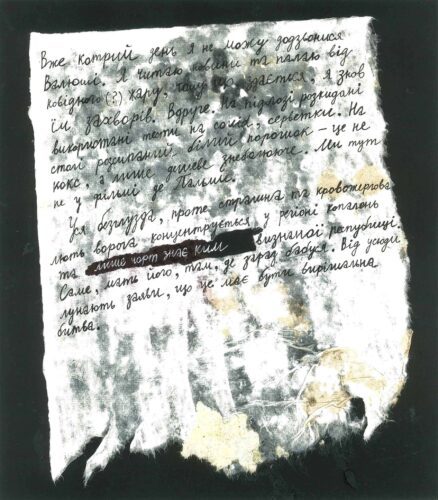 Вже котрий день я не можу додзвонися
Валюші. Я читаю новини та палаю від
ковідного (?) жару, тому що здається, я знов
їм захворів. Вдруге. На підлозі розкидані
використані тести на covid, серветки. На
столі розсипаний білий порошок – це не
кокс, а лише дешеве знеболююче. Ми тут
не у фільмі де Пальме.
Уся безглузда, проте страшна та кровожерлива
лють ворога концентрується у регіоні копалень
та лише чорт знає ким визнаної республіці.
Саме, мать його, там, де зараз бабуся. Від усюди
лунають заяви, що це має бути вирішальна
битва.